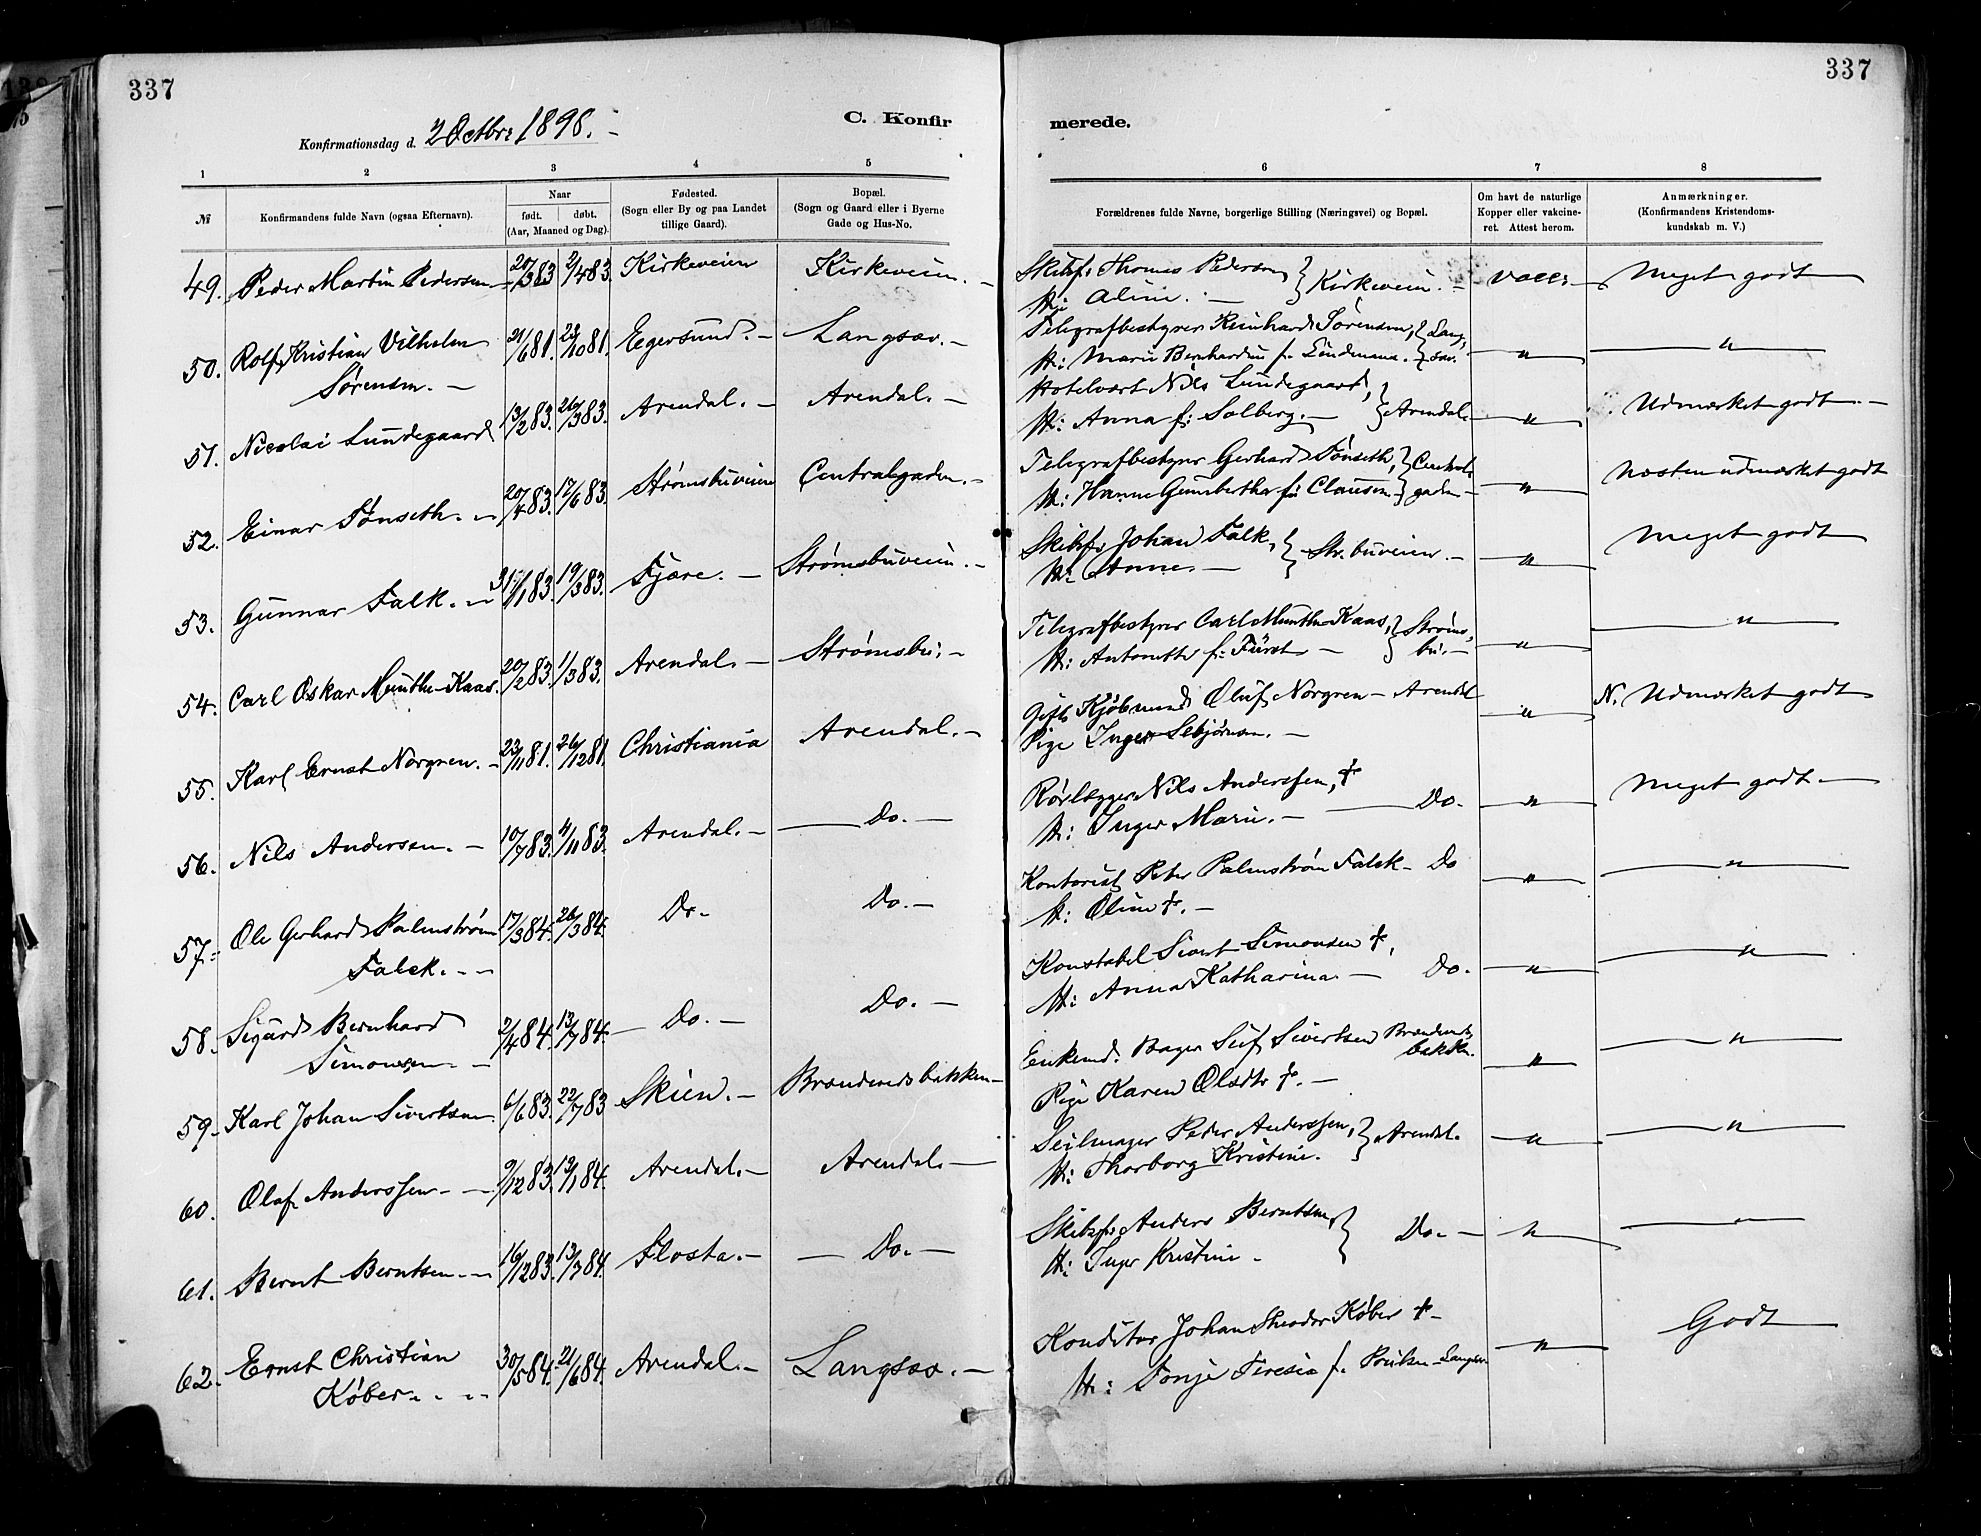 337
337
Konfirmationsdag d. 2 Octbr: 1898. –
C. Konfir
merede.
1 2 3 4 5 6 7 8
№
Konfirmandens fulde Navn (ogsaa Efternavn).
Naar
født. døbt.
(Aar, Maaned og Dag).
Fødested.
(Sogn eller By og paa Landet
tillige Gaard).
Bopæl.
(Sogn og Gaard eller i Byerne
Gade og Hus-No.
Forældrenes fulde Navne, borgerlige Stilling (Næringsvei) og Bopæl.
Om havt de naturlige
Kopper eller vakcine-
ret. Attest herom.
Anmærkninger.
(Konfirmandens Kristendoms-
kundskab m. V.)
49. Peder Martin Pedersen 20/3 83 2/4 83. Kirkeveien Kirkeveien. – Skibsf: Thomas Pedersen } Kirkeveien. – vacc: Meget godt
H: Aline. –
50. Rolf Kristian Vilhelm 21/6 81. 23/10 81. Egersund. – Langsæv. – Telegrafbestyrer Reinhard Sørensen, } Lang,
Sørensen. – H: Marie Bernhardine f. Lindemann. } sæv. " "
51. Nicolai Lundegaard 13/2 83. 26/3 83. Arendal. – Arendal. – Hotelvært Nils Lundegaard,
H: Anna f: Solberg. – } Arendal. " Udmærket godt. –
52. Einar Tønseth. – 20/4 83. 17/6 83. Strømsbuveien Centralgaden. – Telegrafbestyrer Gerhard Tønseth, } Central-
H: Hanne Gunbertha f: Clausen } gaden – " Næsten udmærket godt
53. Gunnar Falk. – 31/1 83. 19/3 83. Fjære. – Strømsbuveien. – Skibsf: Johan Falk, } Str. buveien. –
H: Anne. – " Meget godt
54. Carl Oskar Munthe-Kaas. 20/2 83. 1/3 83. Arendal. – Strømsbu. – Telegrafbestyrer Carl Munthe-Kaas, } Strøms,
H: Antonette f: Fürst – } bu. – " "
55. Karl Ernst Norgren. – 23/11 81. 26/12 81. Christiania Arendal. – Gift Kjøbmand Oluf Norgren – Arendal
Pige Inger Sebjørnsen. – " N. Udmærket godt
56. Nils Andersen. – 10/7 83. 4/11 83. Arendal. – Do. – Rørlægger Nils Anderssen, †
H: Inger Marie. – Do. " Meget godt. –
57. Ole Gerhard Palmstrøm 17/3 84. 26/3 84. Do. – Do. – Kontorist Peter Palmstrøm Falck – Do
Falck. – – H: Oline †. – " "
58. Sigurd Bernhard 2/4 84. 13/7 84. Do. – Do. – Konstabel Sivert Simonsen †,
Simonsen. – H: Anna Katharina. – Do. " "
59. Karl Johan Sivertsen 6/6 83. 22/7 83 Skien. – Brændevinsbakken – Enkemd. Bager Sivertsen Brændevins
bakken.
Pige Karen Olsdtr †. – " "
60. Olaf Anderssen. – 9/12 83. 13/1 84. Arendal. – Arendal – Seilmager Peder Anderssen, } Arendal.
H: Thorborg Kristine. " "
61. Bernt Berntsen. – 16/12 83. 13/7 84. Flosta. – Do. – Skibsf: Anders Berntsen, } Do. –
H: Inger Kristine – " "
62. Ernst Christian 30/5 84. 21/6 84. Arendal. – Langsæv. – Konditor Johan Theodor Køber † –
Køber. – – H: Tonje Teresia f. " Godt